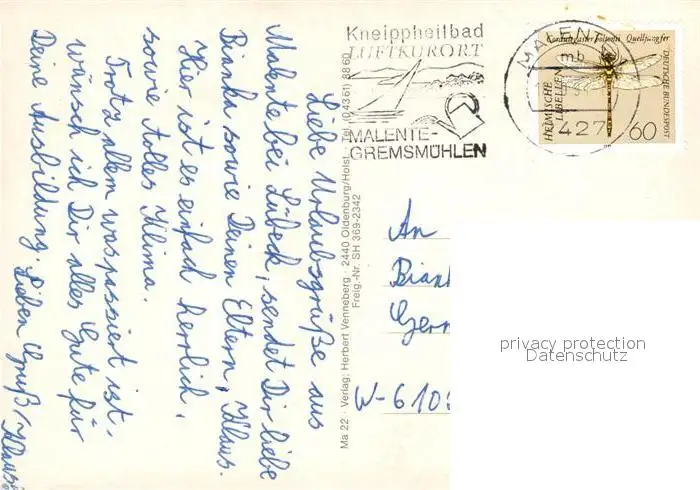 Liebe Urlaubsgrüße aus
Malente bei Lübeck, sendet Dir liebe
Bianka sowie Deinen Eltern, Klaus.
Hier ist es einfach herrlich,
sowie tolles Klima.
Trotz allem was passiert ist,
wünsch ich Dir alles Gute für
Deine Ausbildung. Lieben Gruß / Klaus
Ma 22 · Verlag: Herbert Venneberg · 2440 Oldenburg/Holst. · Tel. (0 43 61) 88 60
Freig.-Nr. SH 369-2342
Kneippheilbad
LUFTKURORT
MALENTE-
GREMSMÜHLEN
MALEN
mb
427
Cordulegaster boltoni Quelljungfer
HEIMISCHE
LIBELLEN
DEUTSCHE BUNDESPOST
60
An
Bian
Ger
W-610
privacy protection
Datenschutz